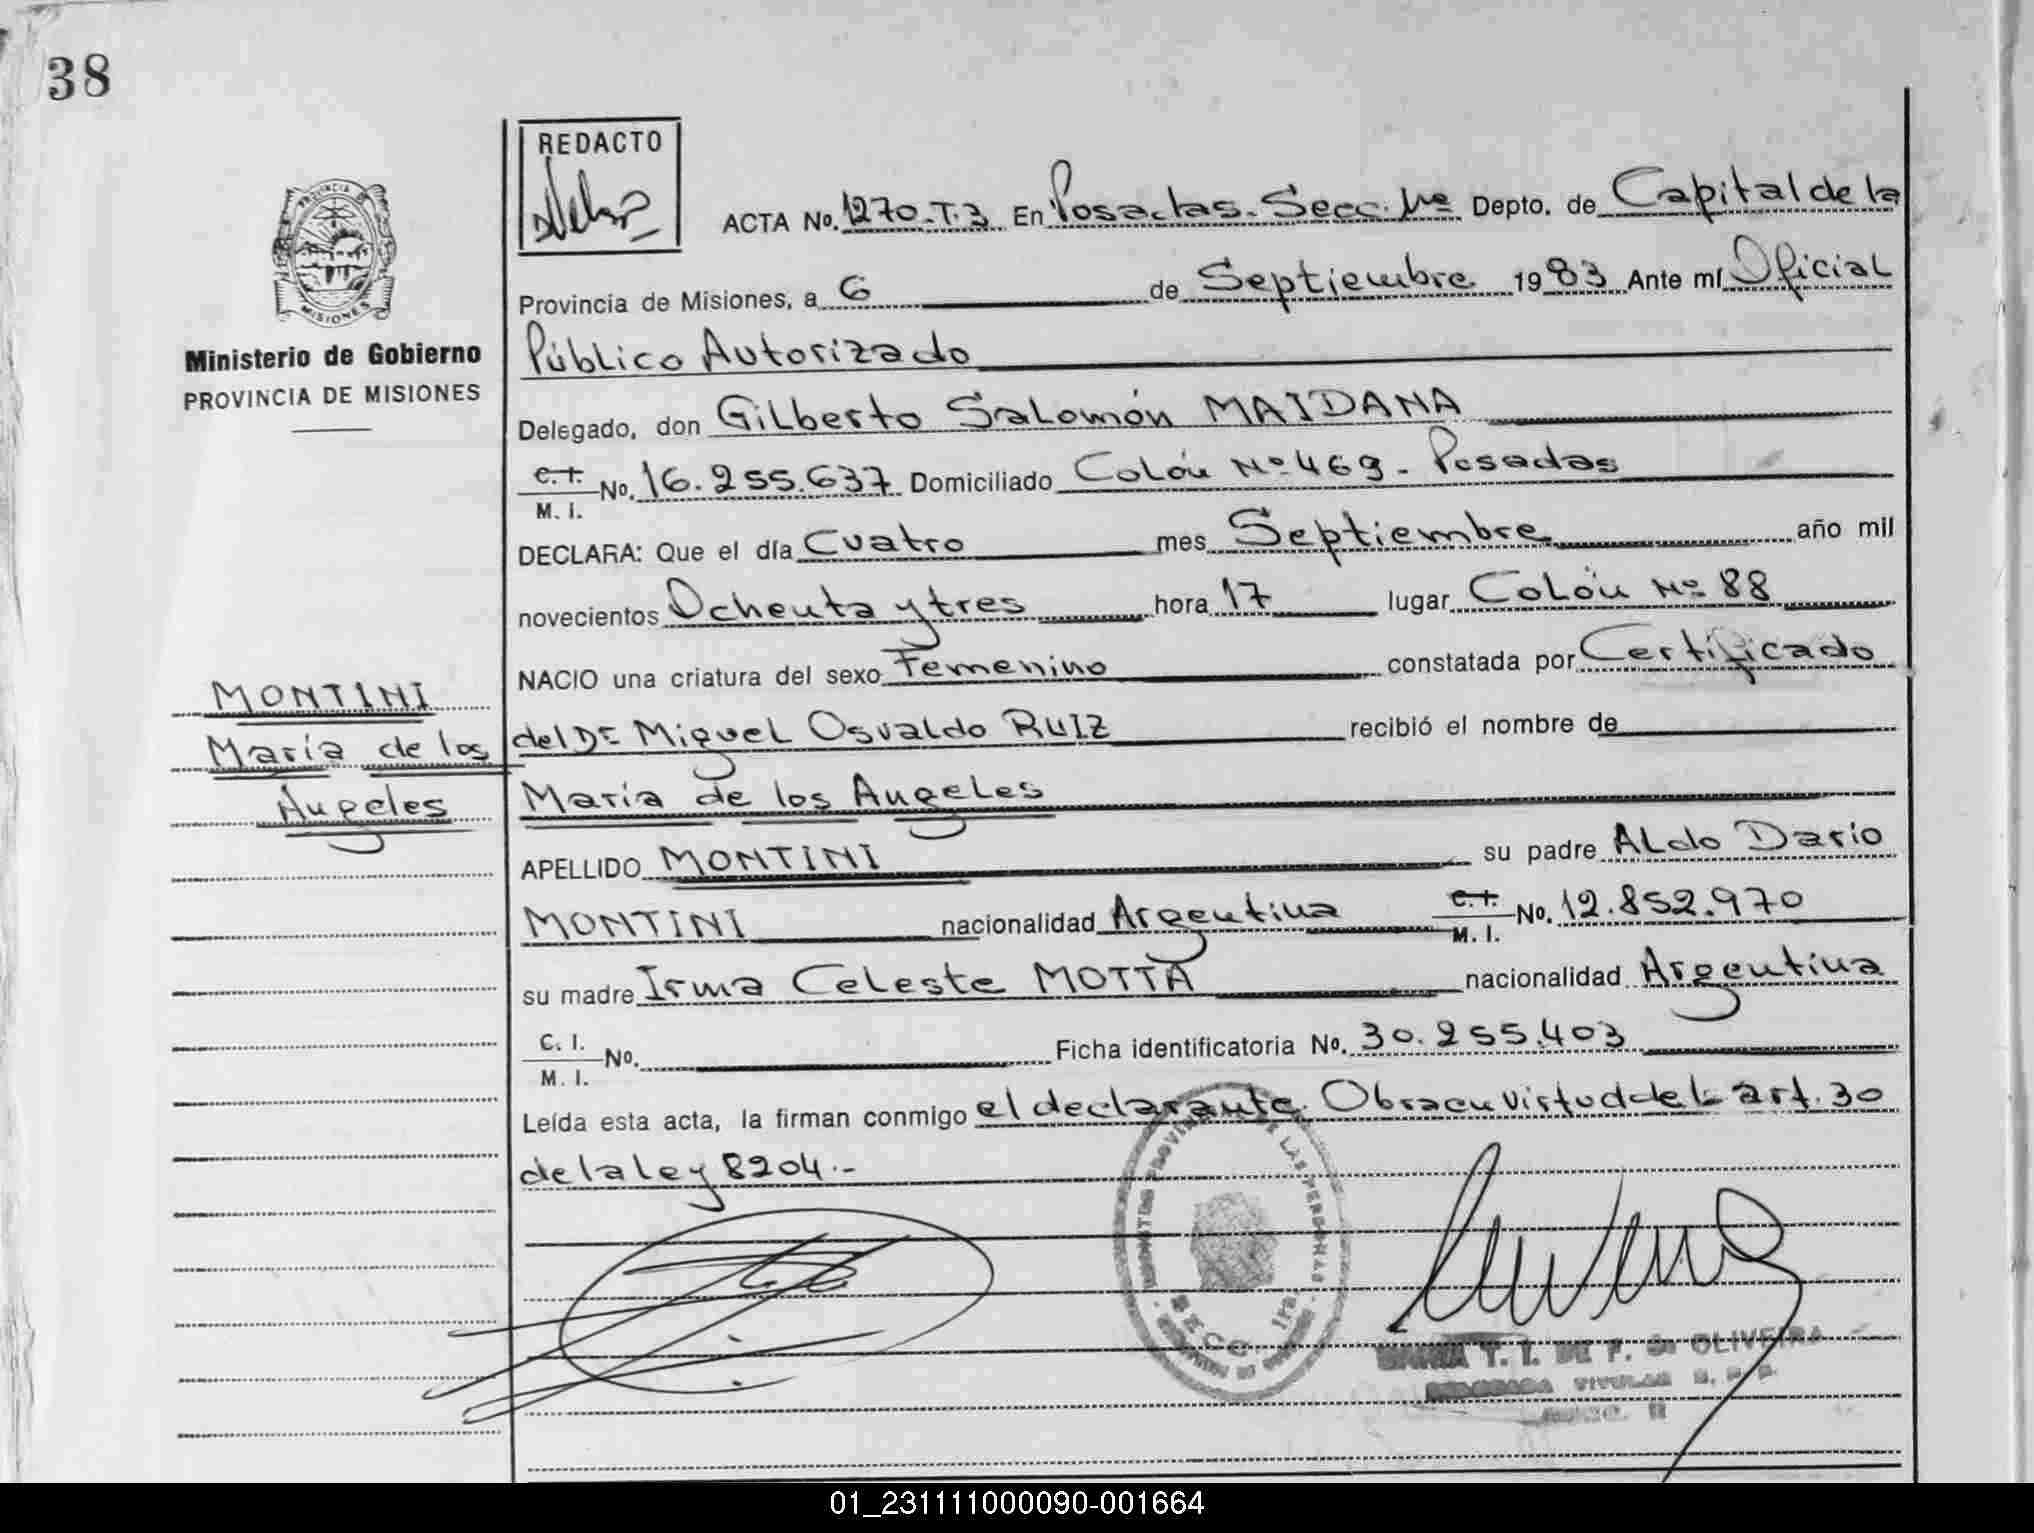 38
REDACTO
ACTA No. 1270-T.3 En Posadas-Secc. 1ra Depto. de Capital de la
PROVINCIA DE
MISIONES
Provincia de Misiones, a 6 de Septiembre 1983 Ante mí Oficial
Ministerio de Gobierno
PROVINCIA DE MISIONES
Público Autorizado
Delegado, don Gilberto Salomón MAIDANA
C.I. M. I. No. 16.255.637 Domiciliado Colón Nº 469 - Posadas
DECLARA: Que el día Cuatro mes Septiembre año mil
novecientos Ochenta y tres hora 17 lugar Colón Nº 88
NACIO una criatura del sexo Femenino constatada por Certificado
MONTINI
María de los
Angeles
del Dr Miguel Osvaldo RUIZ recibió el nombre de
María de los Angeles
APELLIDO MONTINI su padre Aldo Darío
MONTINI nacionalidad Argentina C.I. M. I. No. 12.852.970
su madre Irma Celeste MOTTA nacionalidad Argentina
C. I. M. I. No. Ficha identificatoria No. 30.255.403
Leída esta acta, la firman conmigo el declarante. Obra en virtud del art. 30
de la ley 8204.-
DE LAS PERSONAS
SECC. 1ra.
T. I. DE F. de OLIVEIRA
TITULAR
01_231111000090-001664